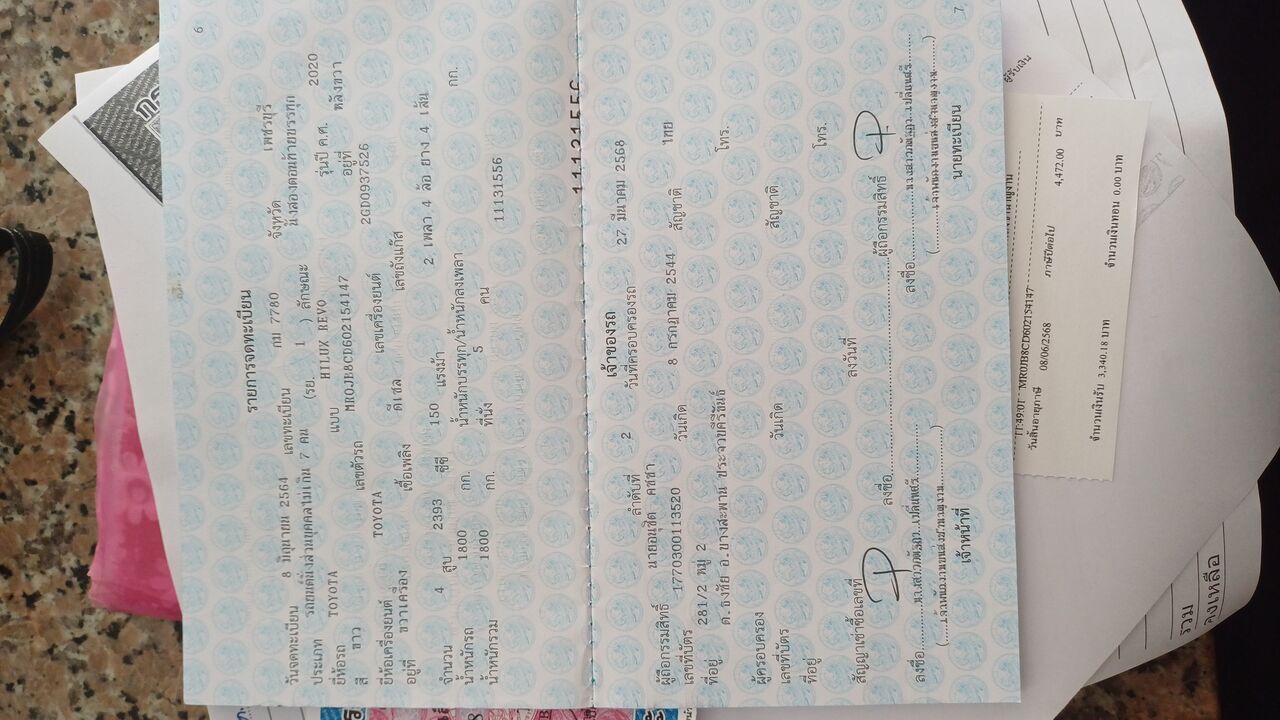 6
รายการจดทะเบียน
วันจดทะเบียน 8 มิถุนายน 2564 เลขทะเบียน กม 7780 จังหวัด เพชรบุรี
ประเภท รถยนต์นั่งส่วนบุคคลไม่เกิน 7 คน (รย. 1 ) ลักษณะ นั่งสองตอนท้ายบรรทุก
ยี่ห้อรถ TOYOTA แบบ HILUX REVO รุ่นปี ค.ศ. 2020
สี ขาว เลขตัวรถ MR0JB8CD602154147 อยู่ที่ หลังขวา
ยี่ห้อเครื่องยนต์ TOYOTA เลขเครื่องยนต์ 2GDD937526
อยู่ที่ ขวาเครื่อง เชื้อเพลิง ดีเซล เลขถังแก๊ส
จำนวน 4 สูบ 2393 ซีซี 150 แรงม้า 2 เพลา 4 ล้อ ยาง 4 เส้น
น้ำหนักรถ 1800 กก. น้ำหนักบรรทุก/น้ำหนักลงเพลา กก.
น้ำหนักรวม 1800 กก. ที่นั่ง 5 คน 11131556
11131556
7
เจ้าของรถ
ลำดับที่ 2 วันที่ครอบครองรถ 27 มีนาคม 2568
ผู้ถือกรรมสิทธิ์ นายอนุชิต คชชา
เลขที่บัตร 1770300113520 วันเกิด 8 กรกฎาคม 2544 สัญชาติ ไทย
ที่อยู่ 281/2 หมู่ 2 โทร.
ต.ธงชัย อ.บางสะพาน ประจวบคีรีขันธ์
ผู้ครอบครอง
เลขที่บัตร วันเกิด สัญชาติ
ที่อยู่ โทร.
สัญญาเช่าซื้อเลขที่ ลงวันที่
ลงชื่อ ผู้ถือกรรมสิทธิ์
ลงชื่อ ลงชื่อ
เจ้าหน้าที่ นายทะเบียน
MR0JB8CD602154147
วันสิ้นอายุภาษี 08/06/2568 ภาษีปีต่อไป 4,472.00 บาท
จำนวนเงินรับ 3,340.18 บาท จำนวนเงินทอน 0.00 บาท
ผู้รับเงิน
รวม
คงเหลือ